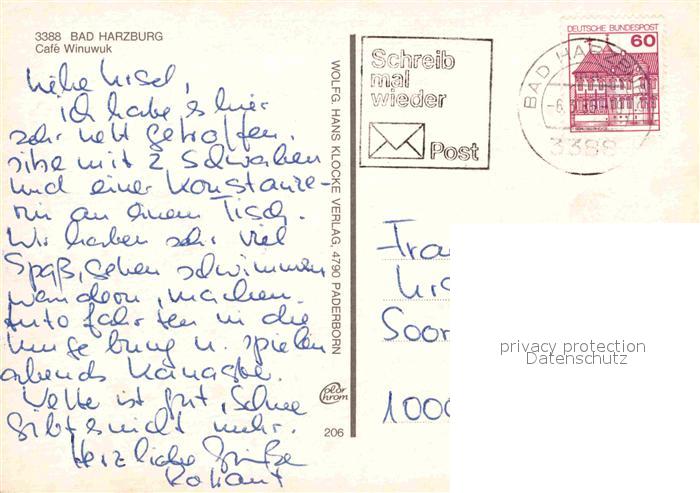 3388 BAD HARZBURG
Café Winuwuk
Liebe Ursel,
ich habe es hier
sehr nett getroffen.
sitze mit 2 Schwaben
und einer Konstanze-
rin an einem Tisch.
Wir haben sehr viel
Spaß, gehen schwimmen
wandern, machen
Autofahrten in die
Umgebung u. spielen
abends Kanaster.
Wetter ist gut, Schnee
gibt es nicht mehr.
Herzliche Grüße
WOLFG. HANS KLOCKE VERLAG, 4790 PADERBORN
color
chrom
206
Schreib
mal
wieder
Post
DEUTSCHE BUNDESPOST
60
BAD HARZBURG
3388
Frau
Soor
1000
privacy protection
Datenschutz